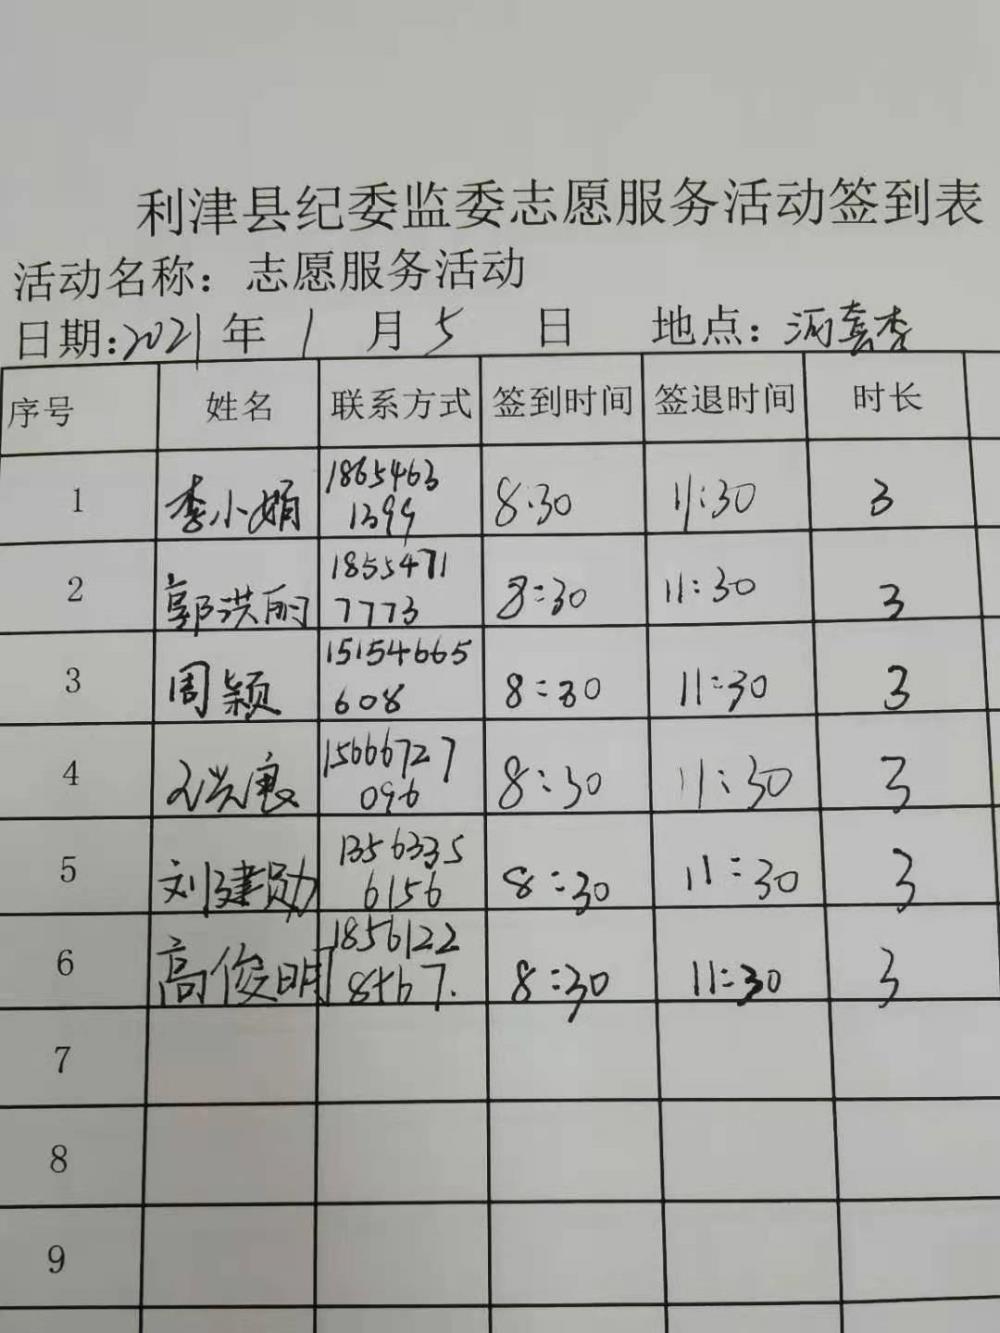 利津县纪委监委志愿服务活动签到表
活动名称：志愿服务活动
日期:2021年1月5日 地点:
序号 姓名 联系方式 签到时间 签退时间 时长
1 李小娟 18654631399 8:30 11:30 3
2 郭洪丽 18554717773 8:30 11:30 3
3 周颖 15154665608 8:30 11:30 3
4 15666727096 8:30 11:30 3
5 刘建勋 13563356156 8:30 11:30 3
6 高俊明 8:30 11:30 3
7
8
9